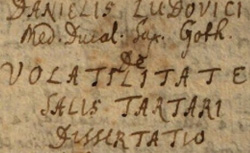 DANIELIS LUDOVICI
Med. Ducal. Sax. Goth.
De
VOLATILITATE
SALIS TARTARI
DISSERTATIO